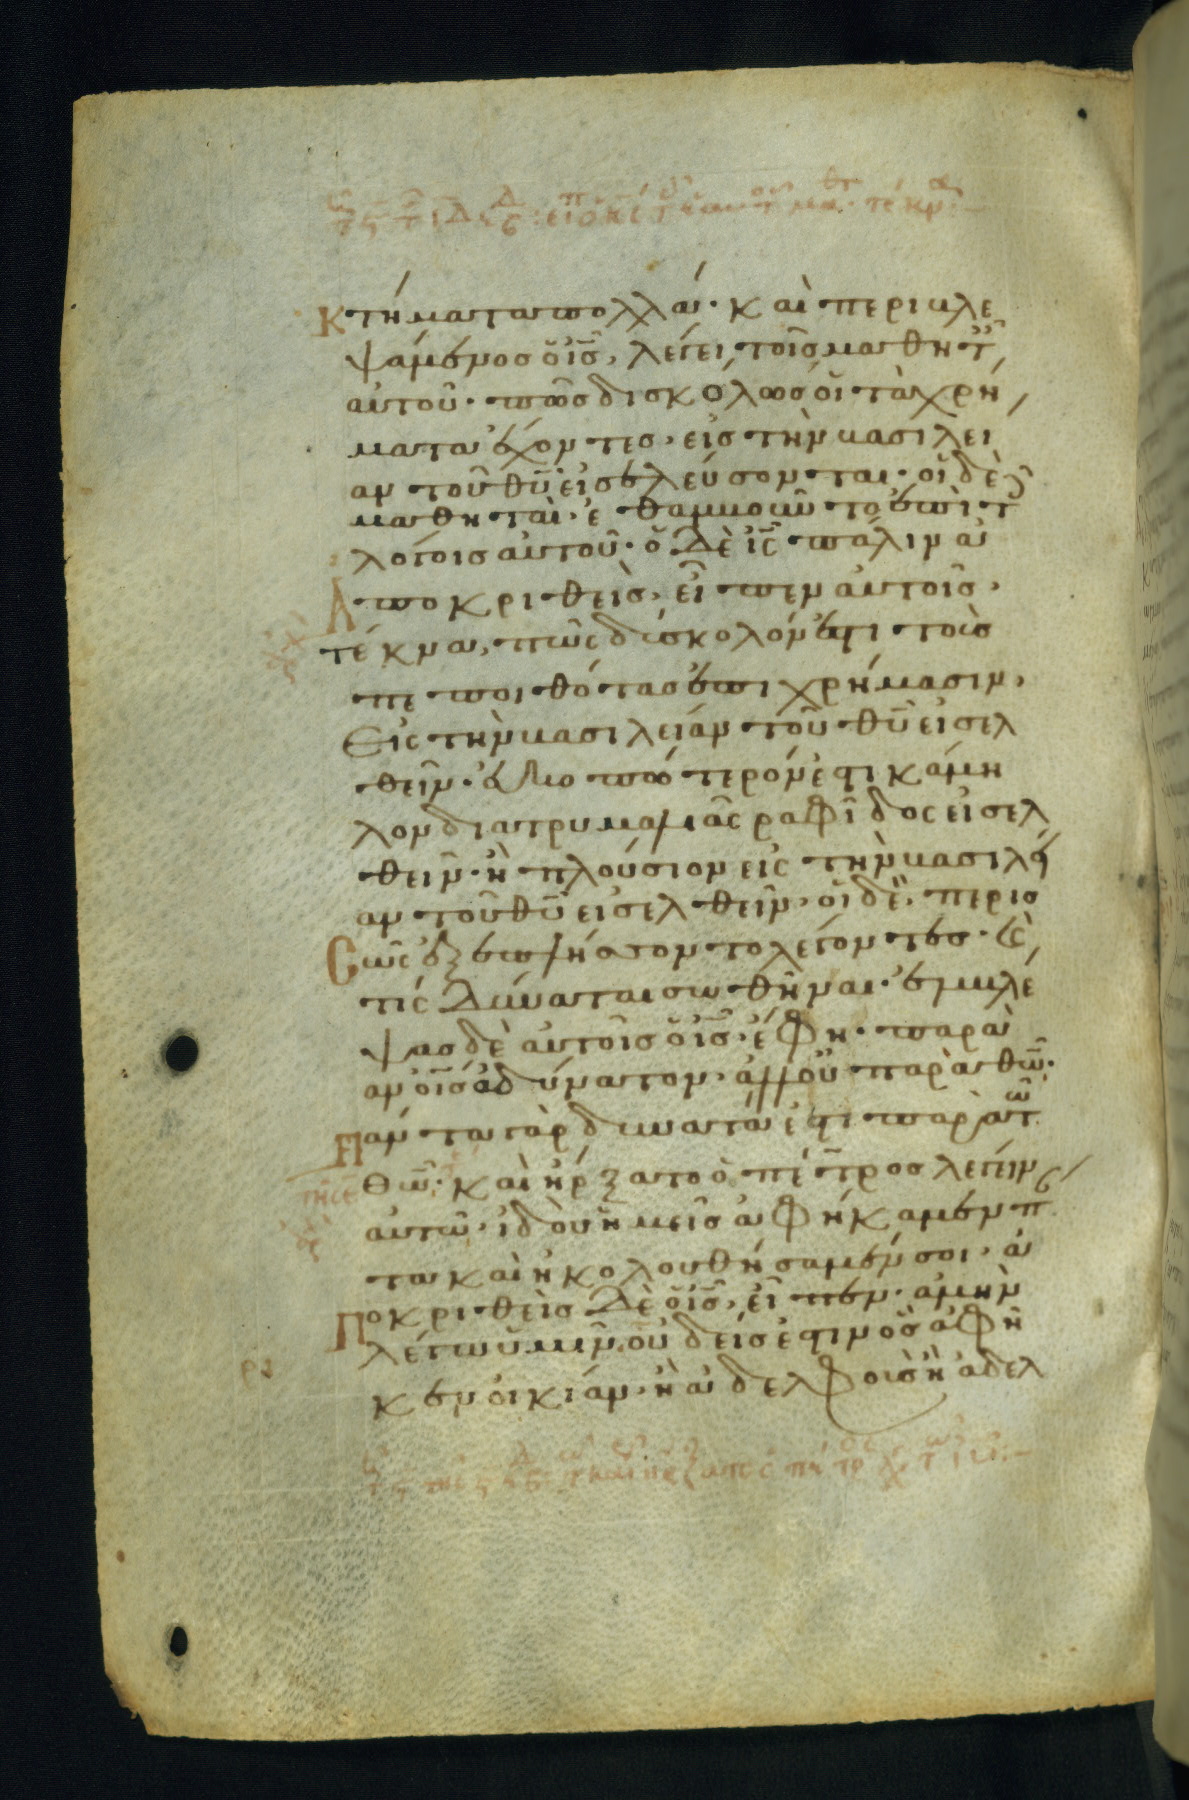 κτήματα πολλά· καὶ περιβλε
ψάμενος ὁ ις̅, λέγει τοῖς μαθητ
αὐτοῦ· πῶς δισκόλως οἱ τὰ χρή
ματα ἔχοντες, εἰς τὴν βασιλεί
αν τοῦ θυ̅ εἰσελεύσονται· οἱ δὲ
μαθηταὶ ἐθαμβοῦντο ἐπὶ τ
λόγοις αὐτοῦ· ὁ δὲ ις̅ πάλιν ἀ
ποκριθεὶς, εἶπεν αὐτοῖς,
τέκνα, πῶς δύσκολόν ἐστι τοὺς
πεποιθότας ἐπι χρήμασιν,
εἰς τὴν βασιλείαν τοῦ θυ̅ εἰσελ
θεῖν· εὐκοπώτερόν ἐστι κάμη
λον δια τρυμαλιᾶς ραφίδος εἰσελ
θεῖν· ἢ πλούσιον εἰς τὴν βασιλεί
αν τοῦ θυ̅ εἰσελθεῖν· οἱ δὲ περισ
σῶς ἐξεπλήσσοντο λέγοντες· καὶ
τίς δύναται σωθῆναι· ἐμβλέ
ψας δὲ αὐτοῖς ὁ ις̅· ἔφη· παρὰ
ανοις̅ ἀδύνατον, ἀλλ' οὐ παρὰ θω̅·
πάντα γὰρ δυνατά ἐστι παρὰ τῶ
θω̅· καὶ ἤρξατο ὁ πέτρος λέγειν
αὐτῶ· ἰδοὺ ἡμεῖς ἀφήκαμεν π
τα καὶ ἠκολουθήσαμέν σοι· ἀ
ποκριθεὶς δὲ ὁ ις̅, εἶπεν· ἀμὴν
λέγω ὑμῖν οὐδείς ἐστιν ὃς ἀφῆ
κεν οἰκίαν· ἢ ἀδελφοὺς ἢ ἀδελ